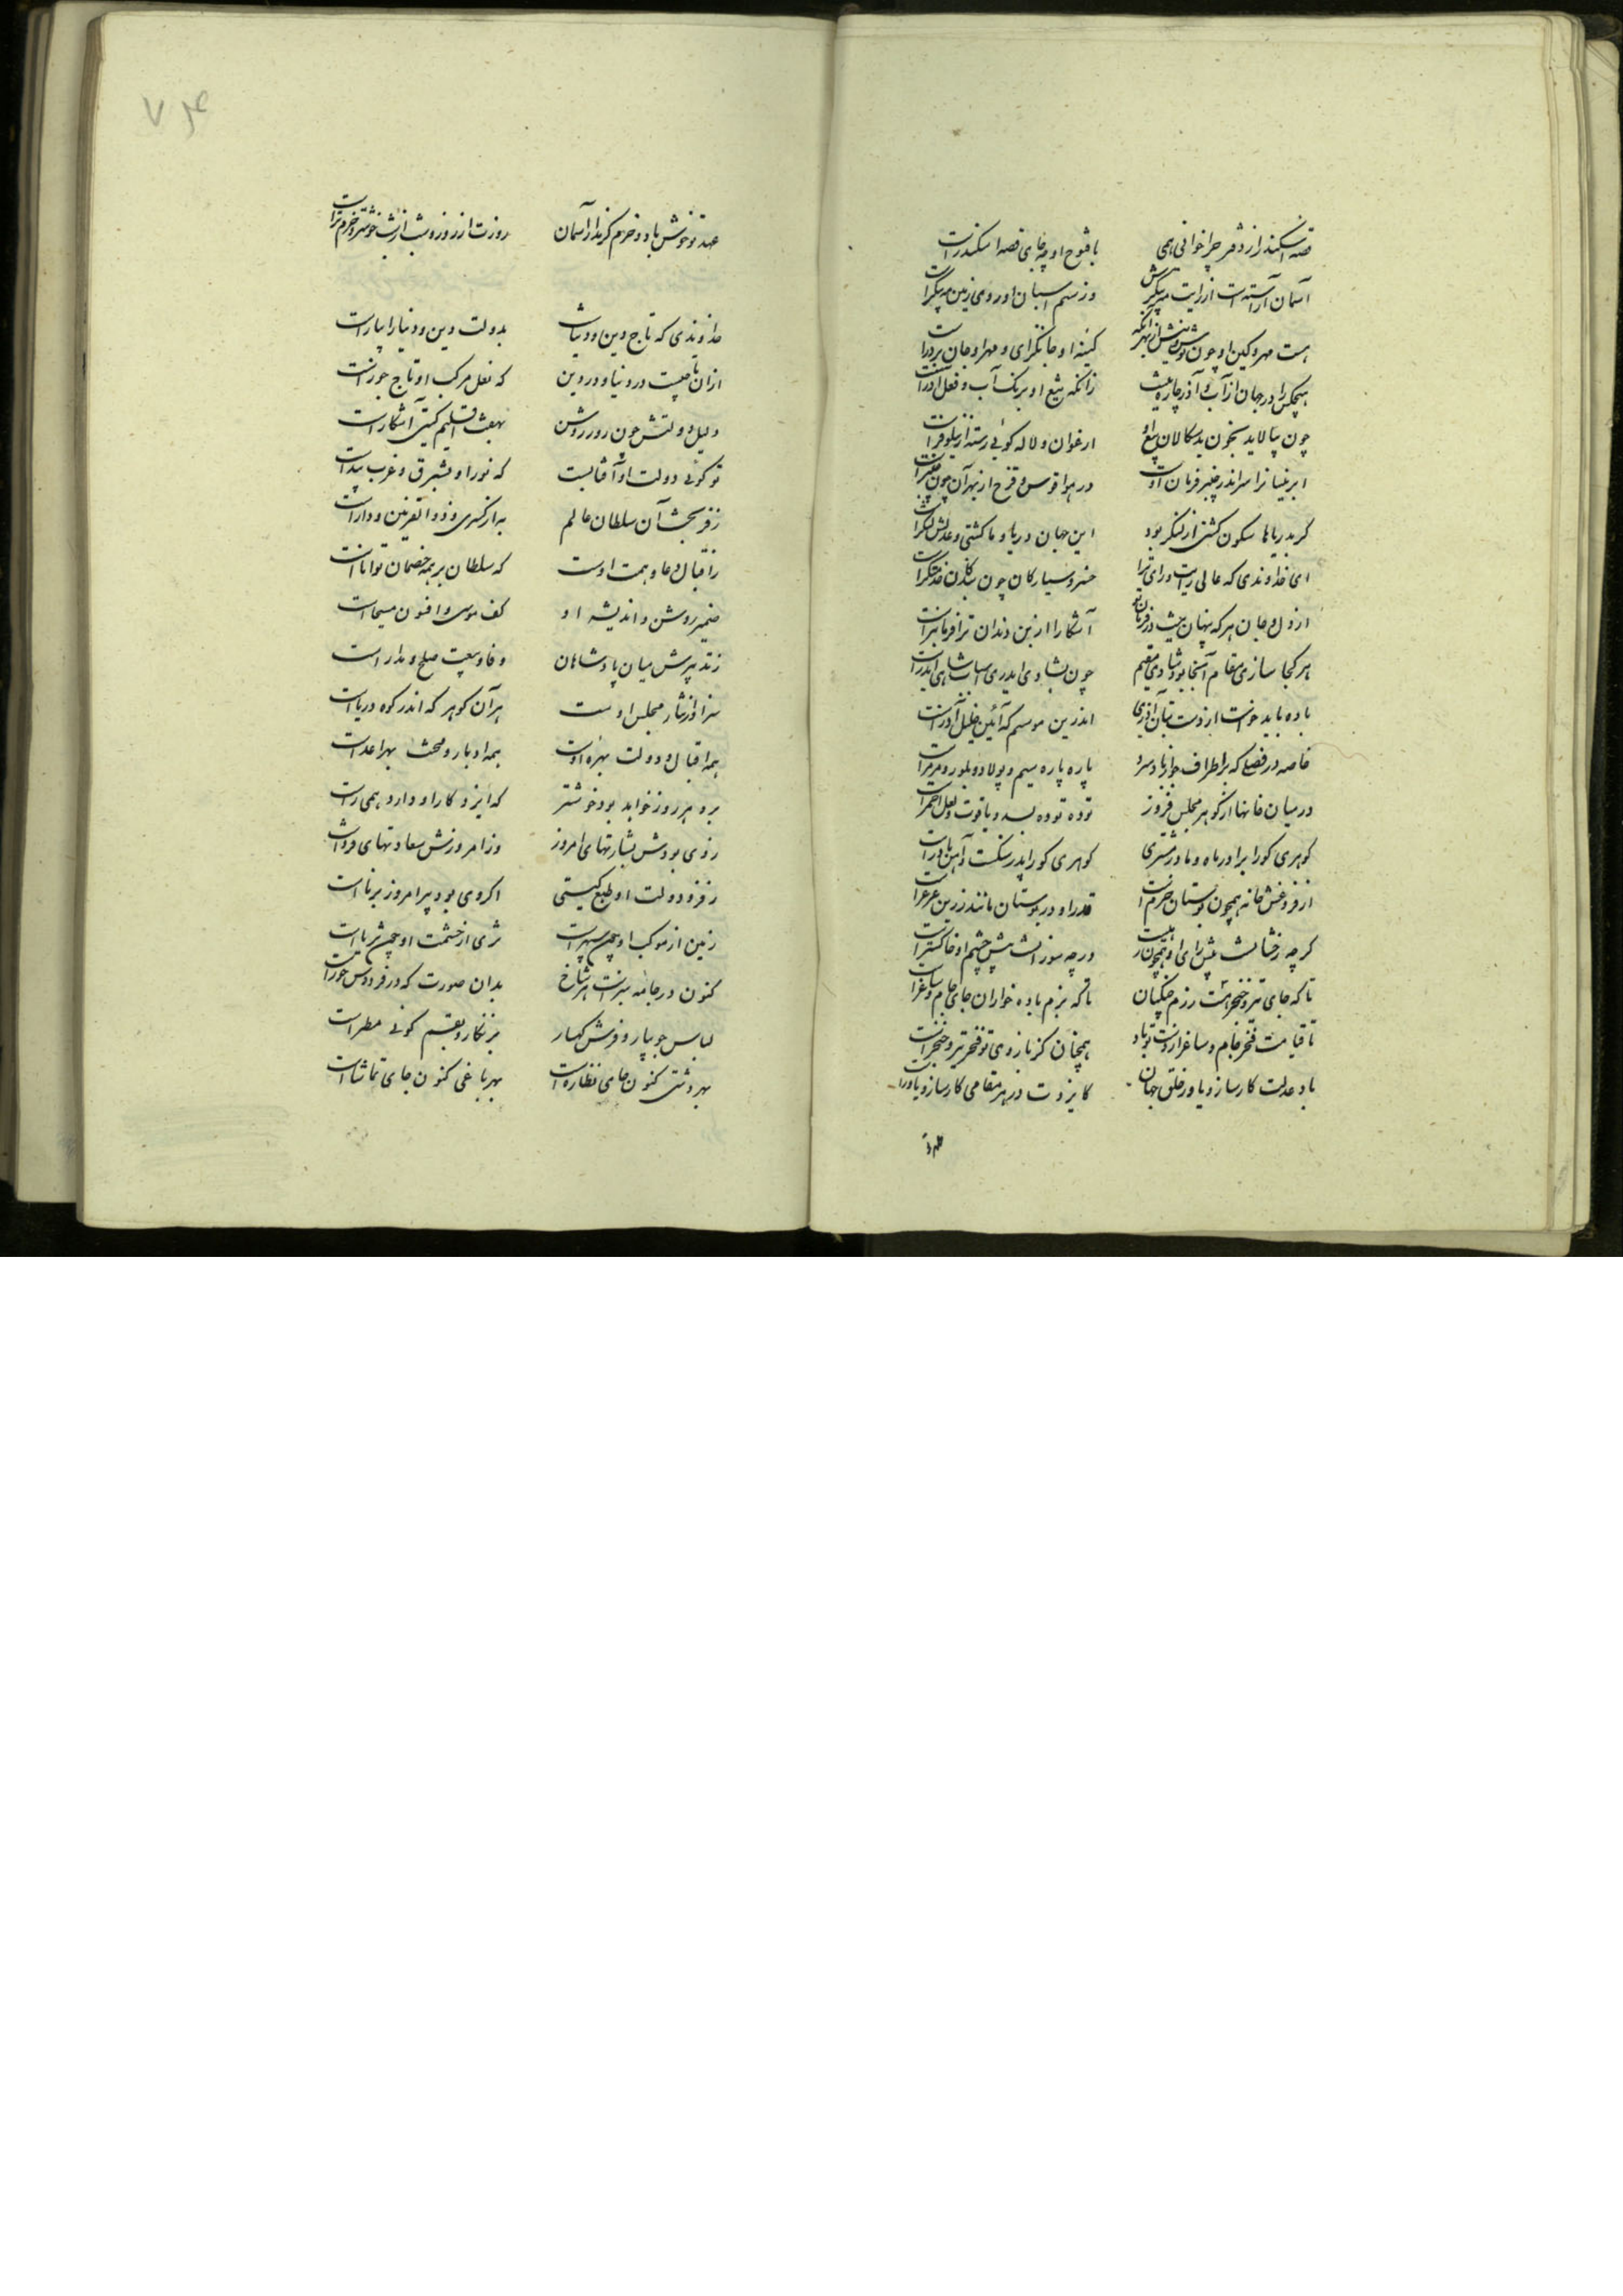 قصه اسکندر از دفتر چرا خوانی همی با فتوح او چه جای قصه اسکندر است
آسمان آراسته است از رایت مه پیکرش وز سم اسبان او روی زمین مه پیکر است
هست مهر و کین او چون نوش و نیش از بهر آنکه کینه او جانگزای و مهر او جان پرور است
هیچکس را در جهان از آب و آذر چاره نیست زانکه تیغ او برنگ آب و فعل آذر است
چون بیالاید بخون بدسکالان تیغ او ارغوان و لاله گوئی رسته از نیلوفر است
در هوا قوس و قزح از بهر آن چون چنبر است
گر بدریاها سکون کشتی از لنگر بود این جهان دریا و ما کشتی و عدلش لنگر است
ای خداوندی که عالی رایت و رای ترا خسرو سیارکان چون بندگان خدمتگر است
از دل و جان هر که پنهان نیست در فرمان تو آشکارا از بن دندان ترا فرمانبر است
هر کجا سازی مقام آنجا بود شادی مقیم چون بشادی ایدری اسباب شاهی ایدر است
باده باید خواست از دست بتان آذری اندرین موسم که آئین خلیل آذر است
خاصه در فصلی که بر اطراف حوض از باد سرد پاره پاره سیم و پولاد و بلور و مرمر است
در میان خانها از گوهر مجلس فروز توده توده بسد و یاقوت و لعل احمر است
گوهری کورا برادر ماه و مادر مشتری گوهری کورا پدر سنگست و آهن مادر است
از فروغش خانه همچون بوستان خرم است قد او در بوستان مانند زرین عرعر است
گرچه رخشانست پیش رای او همچون شبه است ورچه سوزانست پیش خشم او خاکستر است
تا که جای تیر و خنجر هست رزم جنگیان تا که بزم باده خواران جای جام و ساغر است
تا قیامت فخر جام و ساغر از دست تو باد همچنان کز بازوی تو فخر تیر و خنجر است
باد عدلت کارساز و یاور خلق جهان کایزدت در هر مقامی کارساز و یاور است
عهد تو خوش باد و خرم کز مدار آسمان روزت از روز و شب از شب خوشتر و خرم تر است
۷۴
خداوندی که تاج دین و دنیاست بدولت دین و دنیا را بیاراست
ازان تاجیست در دنیا و در دین که نعل مرکب او تاج جوزاست
دلیل دولتش چون روز روشن بهفت اقلیم گیتی آشکاراست
تو گوئی دولت او آفتابست که نور او بشرق و غرب پیداست
ز فر بخت آن سلطان عالم به از کسری و ذوالقرنین و داراست
ز اقبال و دعا و همت اوست که سلطان بر همه خصمان تواناست
ضمیر روشن و اندیشه او کف موسی و افسون مسیحاست
ز تدبیرش میان پادشاهان وفا و بیعت صلح و مداراست
سزاوار نثار مجلس اوست هر آن گوهر که اندر کوه و دریاست
همه اقبال و دولت بهره اوست همه ادبار و محنت بهر اعداست
برو هر روز خواهد بود خوشتر که ایزد کار او دارد همی راست
ز دی بودش بشارتهای امروز وز امروزش سعادتهای فرداست
ز فر دولت او طبع گیتی اگر دی بود پیر امروز برناست
زمین از موکب او چون سپهر است ثری از حشمت او چون ثریاست
کنون در جامه سبز است هر شاخ بدان صورت که در فردوس حوراست
لباس جویبار و فرش کهسار
بهر دشتی کنون جای نظاره است بهر باغی کنون جای تماشاست